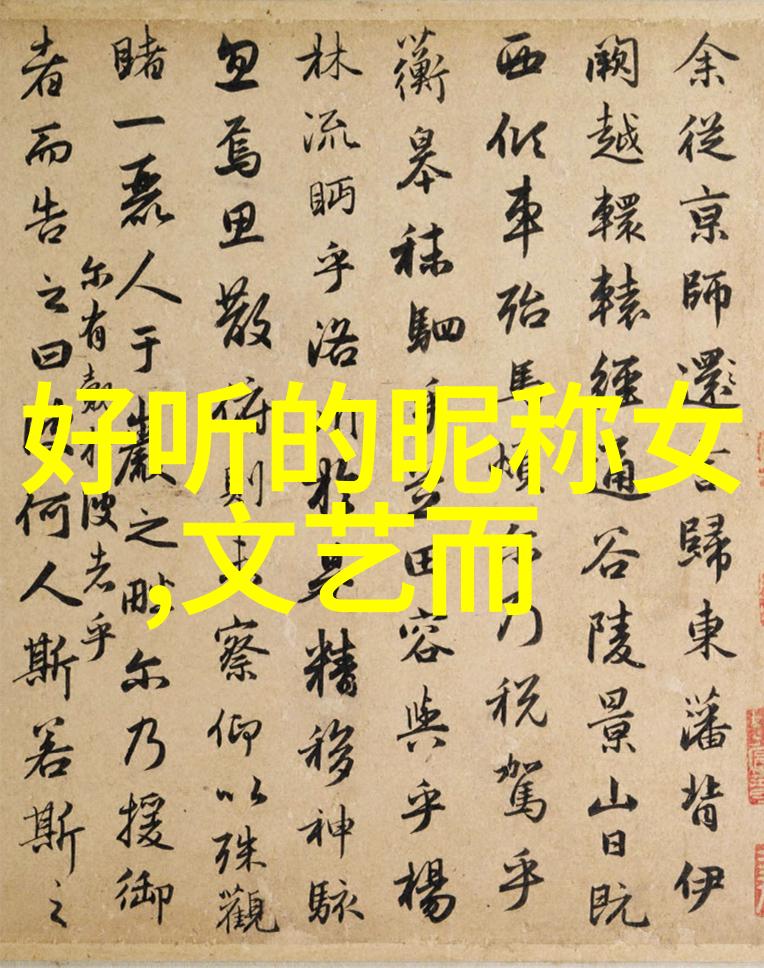 余從京師還言歸東藩背伊
闕越轘轅經通谷陵景山日既
西傾車殆馬煩尔乃税駕乎
蘅皋秣駟乎芝田容與乎楊
林流眄乎洛川於是精移神駭
忽焉思散俯則未察仰以殊觀
睹一麗人于巖之畔尔乃援御
尔有覿於彼者乎
者而告之曰彼何人斯若斯之
好听的昵称女
,文艺而